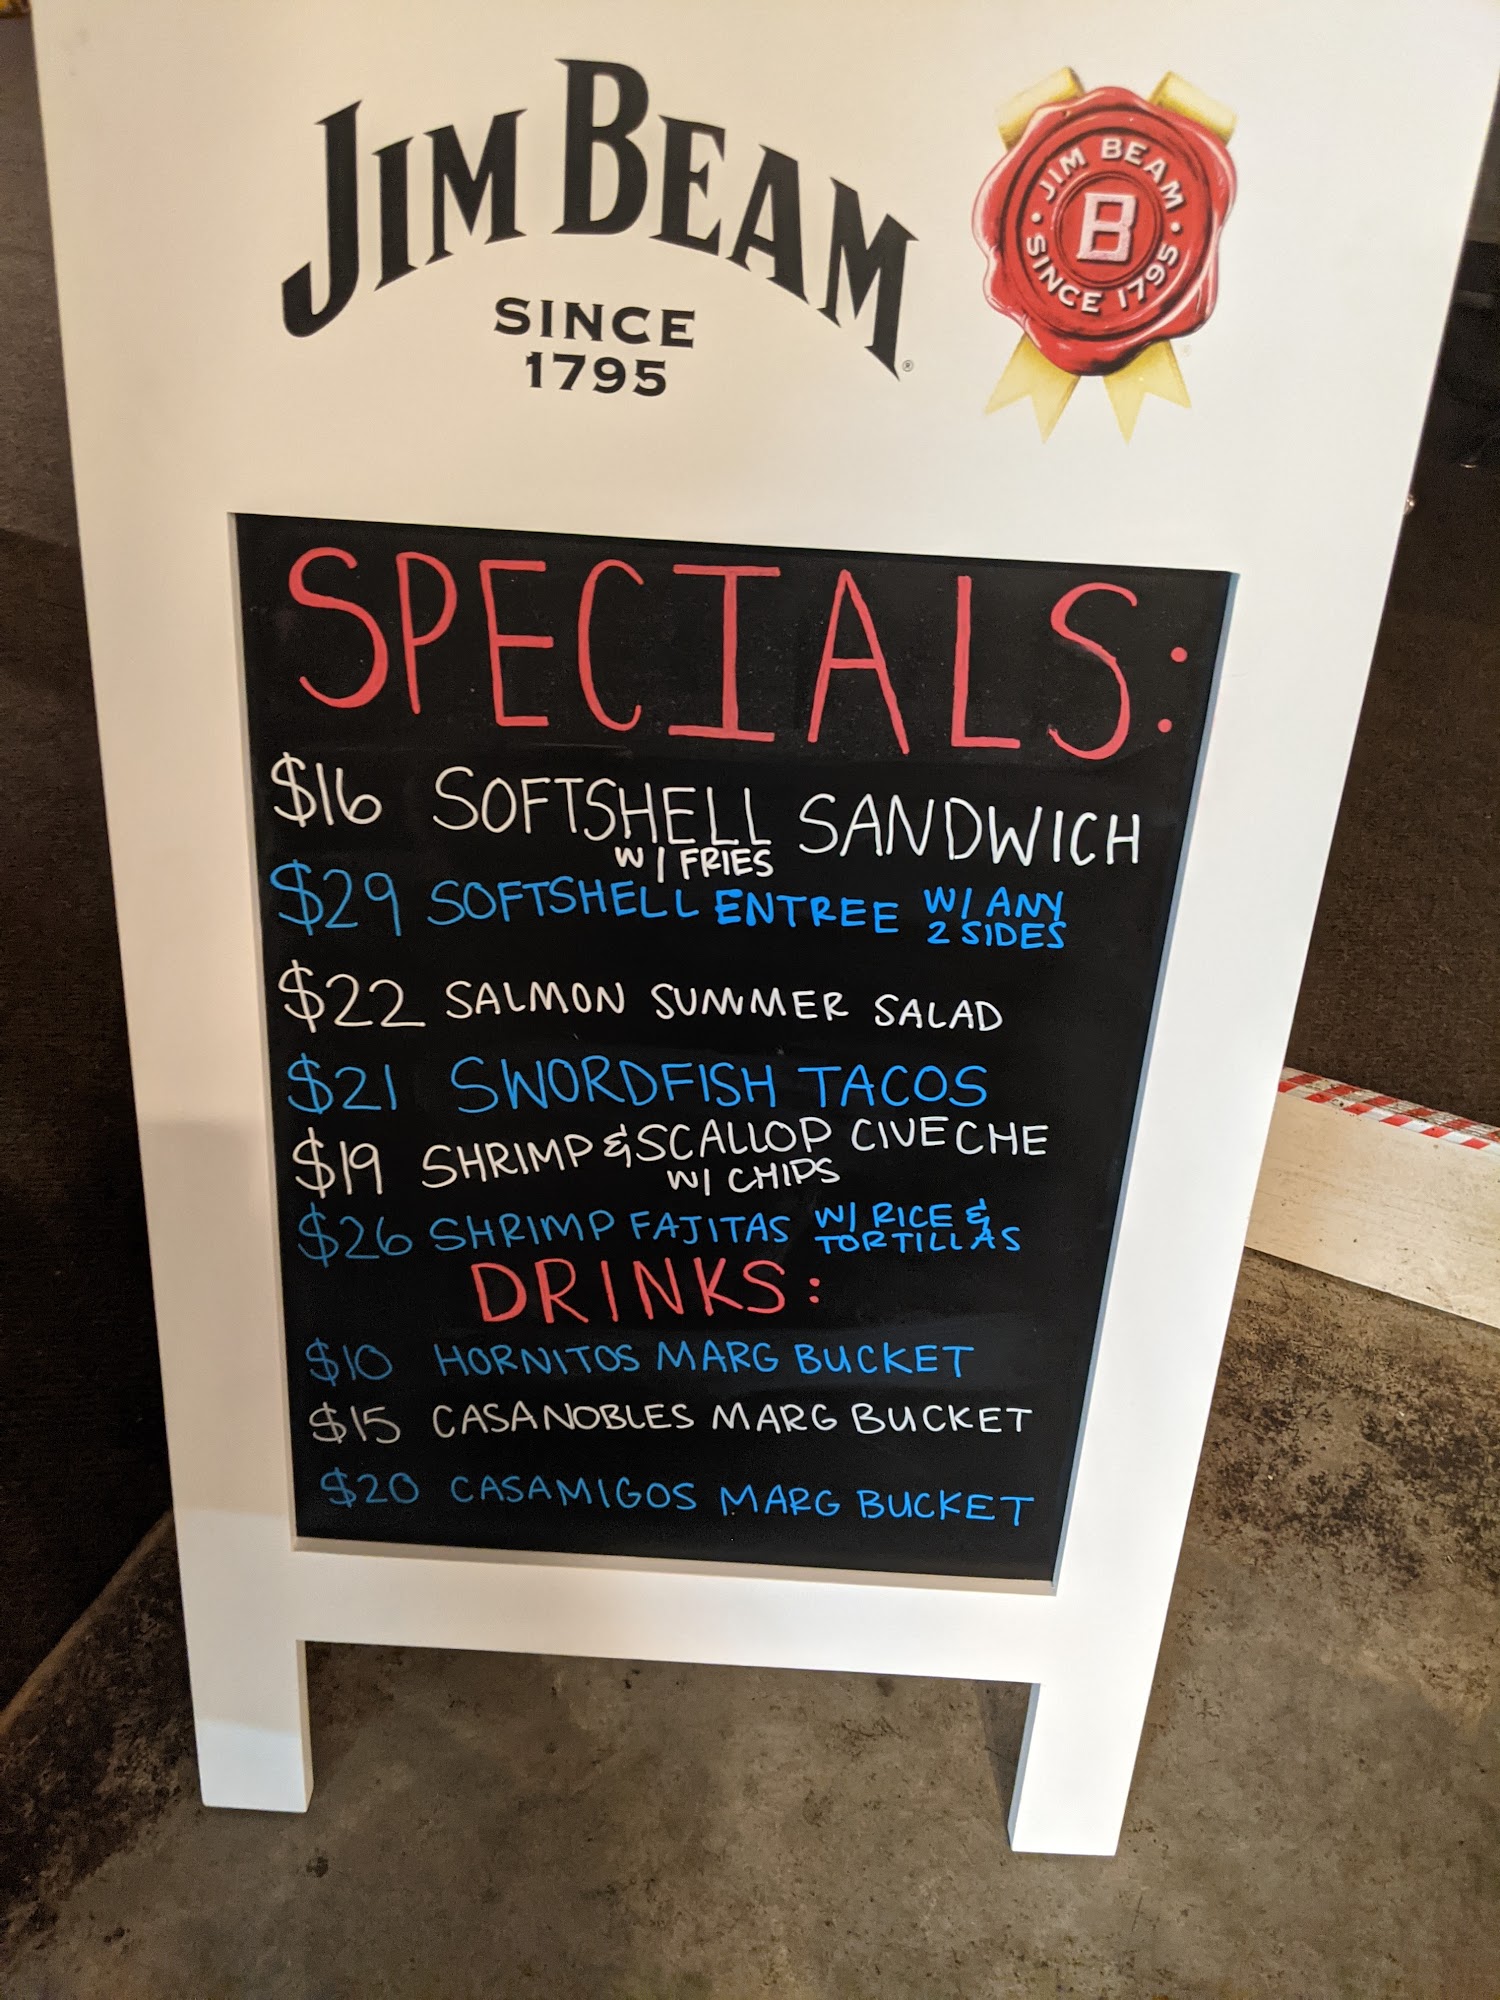 JIM BEAM
SINCE
1795
®
JIM BEAM
B
SINCE 1795
SPECIALS:
$16 SOFTSHELL SANDWICH
W/ FRIES
$29 SOFTSHELL ENTREE W/ ANY
2 SIDES
$22 SALMON SUMMER SALAD
$21 SWORDFISH TACOS
$19 SHRIMP & SCALLOP CIVECHE
W/ CHIPS
$26 SHRIMP FAJITAS W/ RICE &
TORTILLAS
DRINKS:
$10 HORNITOS MARG BUCKET
$15 CASANOBLES MARG BUCKET
$20 CASAMIGOS MARG BUCKET